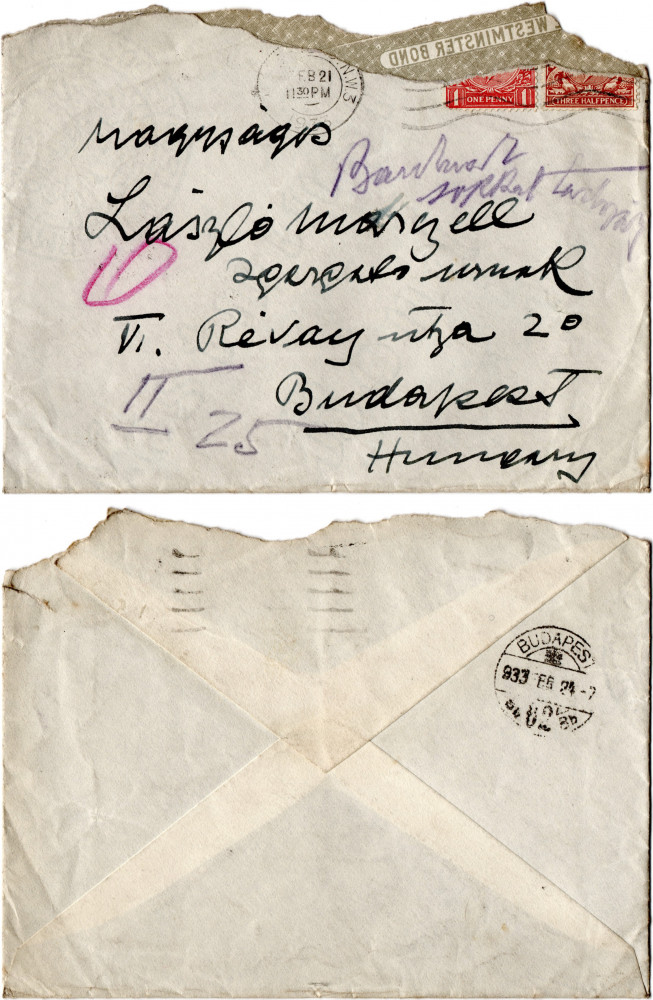 WESTMINSTER BOND
N.W.3
FEB 21
11 30 PM
1933
ONE PENNY
THREE HALFPENCE
Nagyságos
László Marczell
igazgató urnak
VI. Révay utza 20
II
25
Budapest
Hungary
BUDAPEST
933 FEB 24 - 7